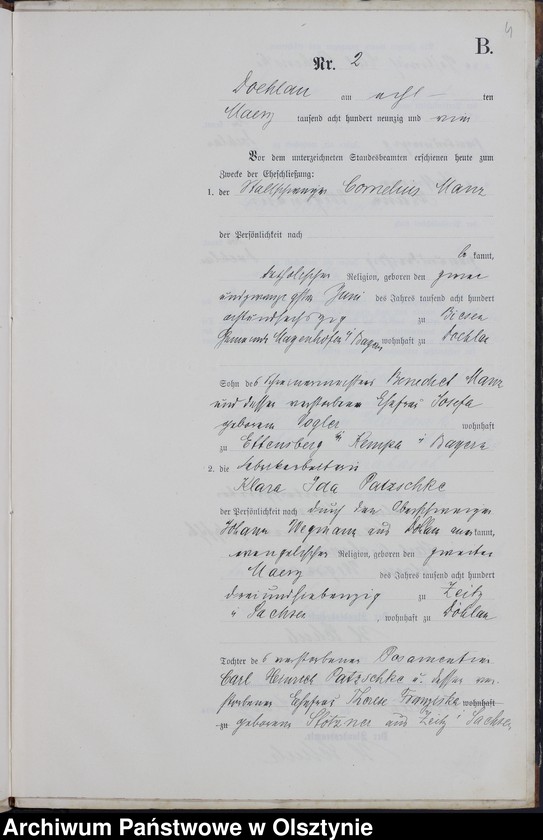 4
B.
Nr. 2
Doehlau am acht ten
Maerz tausend acht hundert neunzig und
Vor dem unterzeichneten Standesbeamten erschienen heute zum
Zwecke der Eheschließung:
1. der Cornelius Manz
der Persönlichkeit nach
be kannt,
katholischer Religion, geboren den zwei
undzwanzigsten Juni des Jahres tausend acht hundert
achtundsechszig zu
Gemeinde i Bayern, wohnhaft zu Doehlau
Sohn des Benedict Manz
und dessen verstorbene Ehefrau Josefa
geborene Vogler wohnhaft
zu i Bayern
2. die
Klara Ida Patzschke
der Persönlichkeit nach durch den Oberschweizer
Johann Wegmann aus Döhlau anerkannt,
evangelischer Religion, geboren den zweiten
Maerz des Jahres tausend acht hundert
dreiundsiebenzig zu Zeitz
i Sachsen, wohnhaft zu Döhlau
Tochter des verstorbenen Posamentier
Carl Heinrich Patzschke u. dessen ver
storbenen Ehefrau Franziska wohnhaft
zu geborene Stötzner aus Zeitz i Sachsen
Archiwum Państwowe w Olsztynie